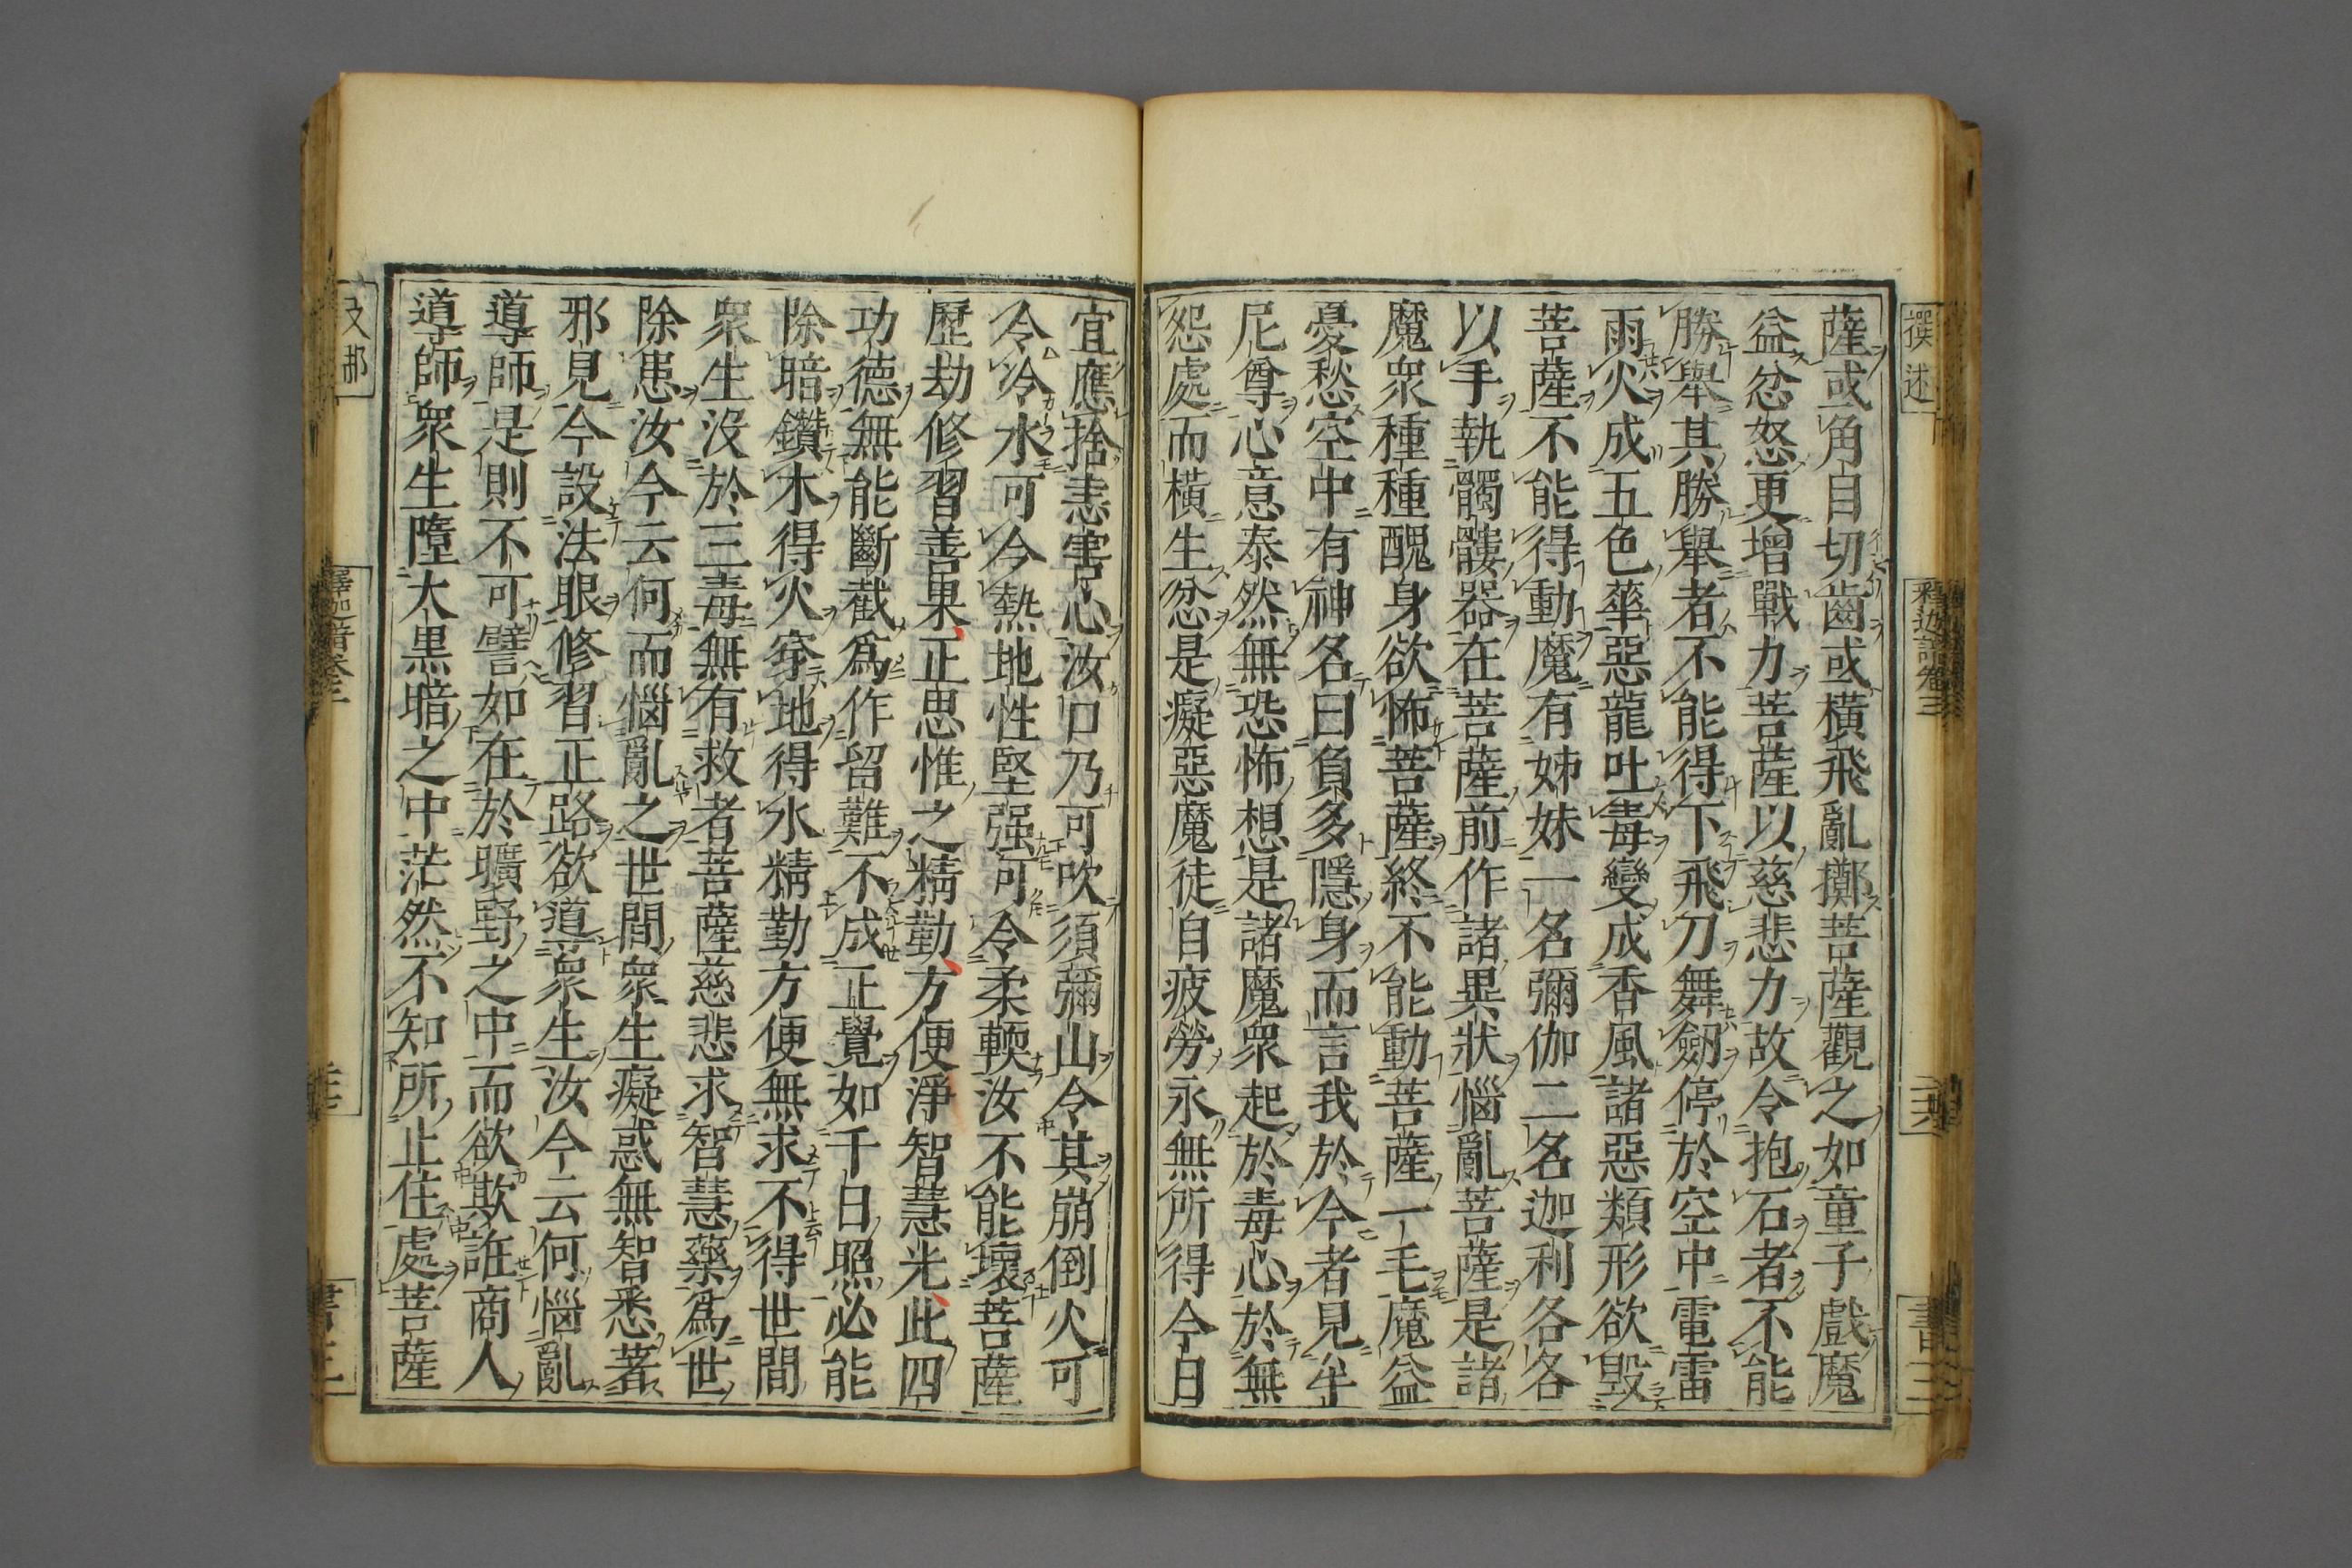 撰述
釋迦譜卷三
書三
薩或角目切齒或橫飛亂擲菩薩觀之如童子戲魔
益忿怒更增戰力菩薩以慈悲力故令抱石者不能
勝舉其勝舉者不能得下飛刀舞劒停於空中電雷
雨火成五色華惡龍吐毒變成香風諸惡類形欲毀
菩薩不能得動魔有姊妹一名彌伽二名迦利各各
以手執髑髏器在菩薩前作諸異狀惱亂菩薩是諸
魔眾種種醜身欲怖菩薩終不能動菩薩一毛魔益
憂愁空中有神名曰負多隱身而言我於今者見牟
尼尊心意泰然無恐怖想是諸魔眾起於毒心於無
怨處而橫生忿是癡惡魔徒自疲勞永無所得今日
宜應捨恚害心汝口乃可吹須彌山令其崩倒火可
令冷水可令熱地性堅强可令柔輭汝不能壞菩薩
歷劫修習善果正思惟之精勤方便淨智慧光此四
功德無能斷截為作留難不成正覺如千日照必能
除暗鑽木得火穿地得水精勤方便無求不得世間
眾生沒於三毒無有救者菩薩慈悲求智慧藥為世
除患汝今云何而惱亂之世間眾生癡惑無智悉著
邪見今設法眼修習正路欲導眾生汝今云何惱亂
導師是則不可譬如在於曠野之中而欲欺誑商人
導師眾生墮大黑暗之中茫然不知所止住處菩薩
支那
釋迦譜卷三
書三